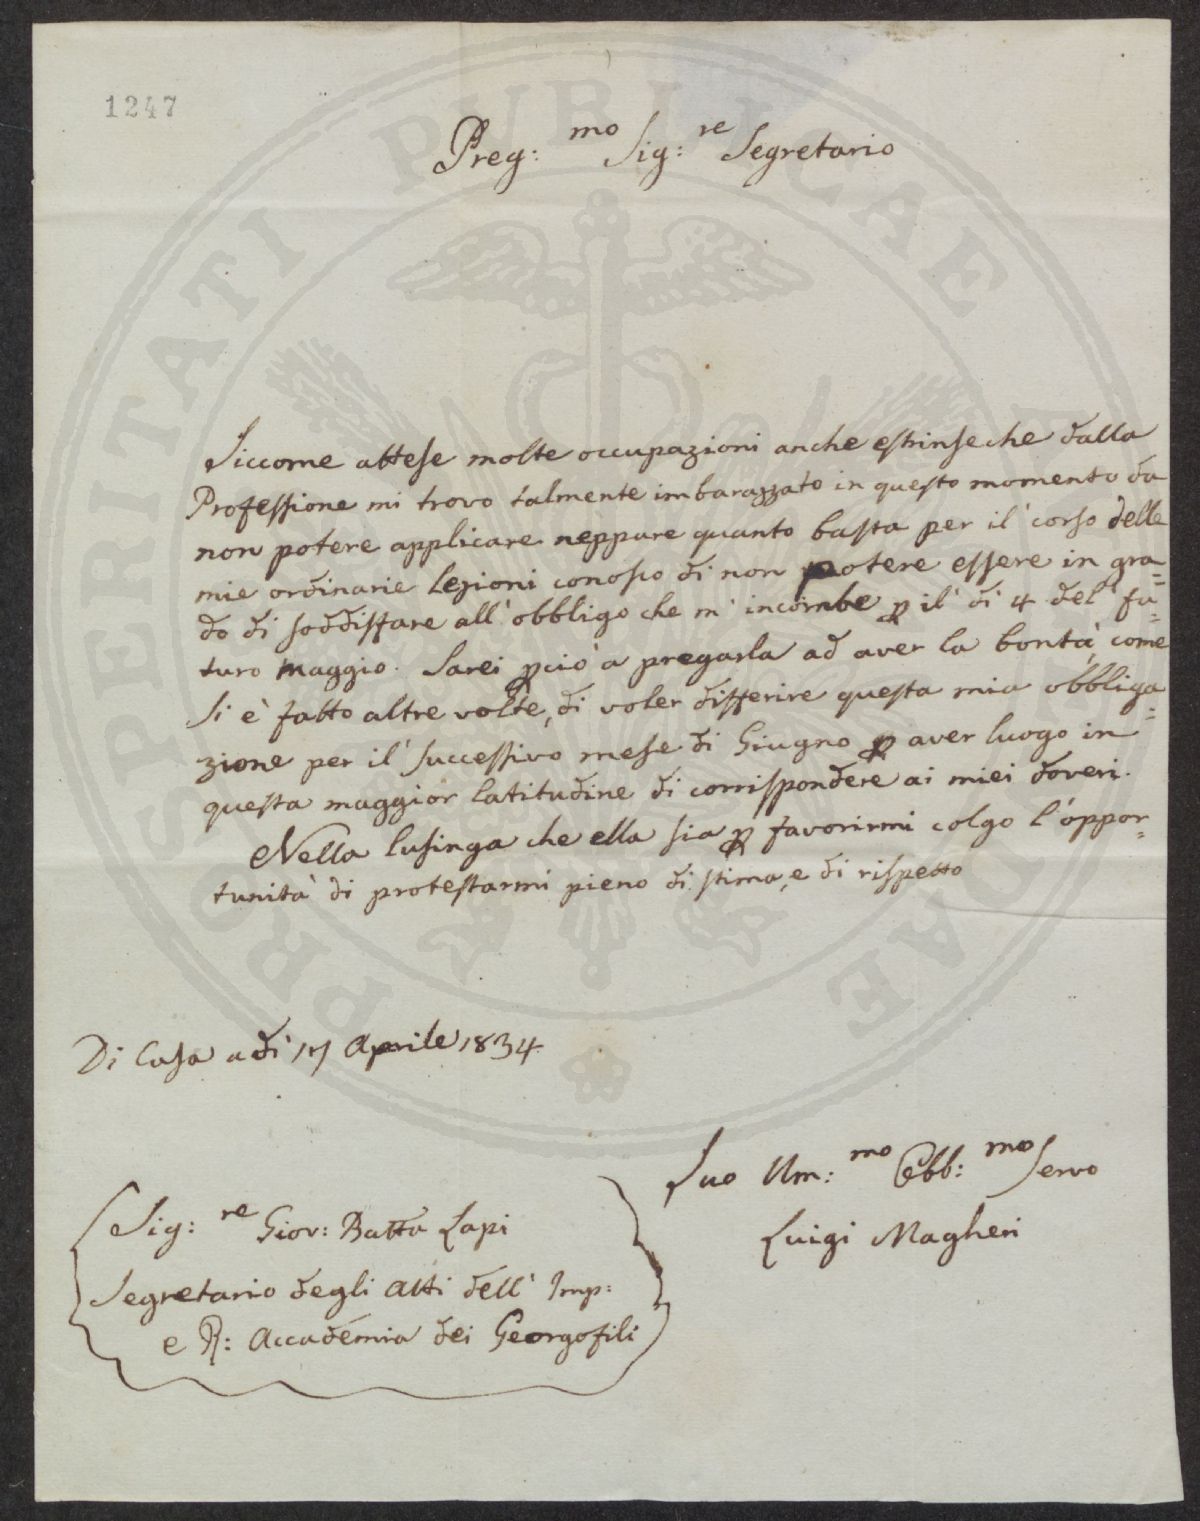 1247
Preg: mo Sig: re Segretario
Siccome attese molte occupazioni anche estrinseche dalla
Professione mi trovo talmente imbarazzato in questo momento da
non potere applicare neppure quanto basta per il corso delle
mie ordinarie lezioni conosco di non potere essere in gra=
do di soddisfare all' obbligo che m' incombe p il dì 4 del fu=
turo Maggio. Sarei pciò a pregarla ad aver la bontà, come
si è fatto altre volte, di voler differire questa mia obbliga=
zione per il successivo mese di Giugno p aver luogo in
questa maggior latitudine di corrispondere ai miei doveri.
Nella lusinga che ella sia p favorirmi colgo l'oppor=
tunità di protestarmi pieno di stima, e di rispetto
Di Casa adì 17 Aprile 1834.
Suo Um: mo Obb: mo Servo
Luigi Magheri
Sig: re Giov: Batta Lapi
Segretario degli Atti dell' Imp:
e R: Accademia dei Georgofili
PROSPERITATI PUBLICAE AUGENDAE